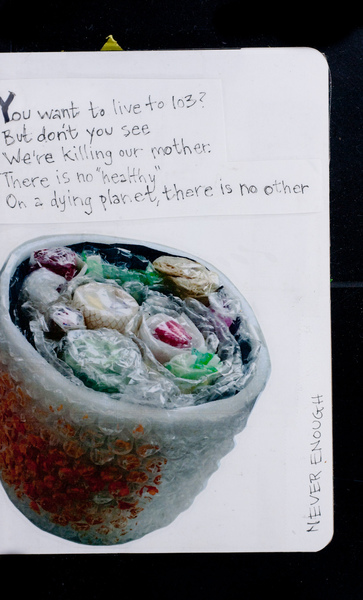 You want to live to 103?
But don't you see
We're killing our mother.
There is no "healthy"
On a dying planet, there is no other
NEVER ENOUGH